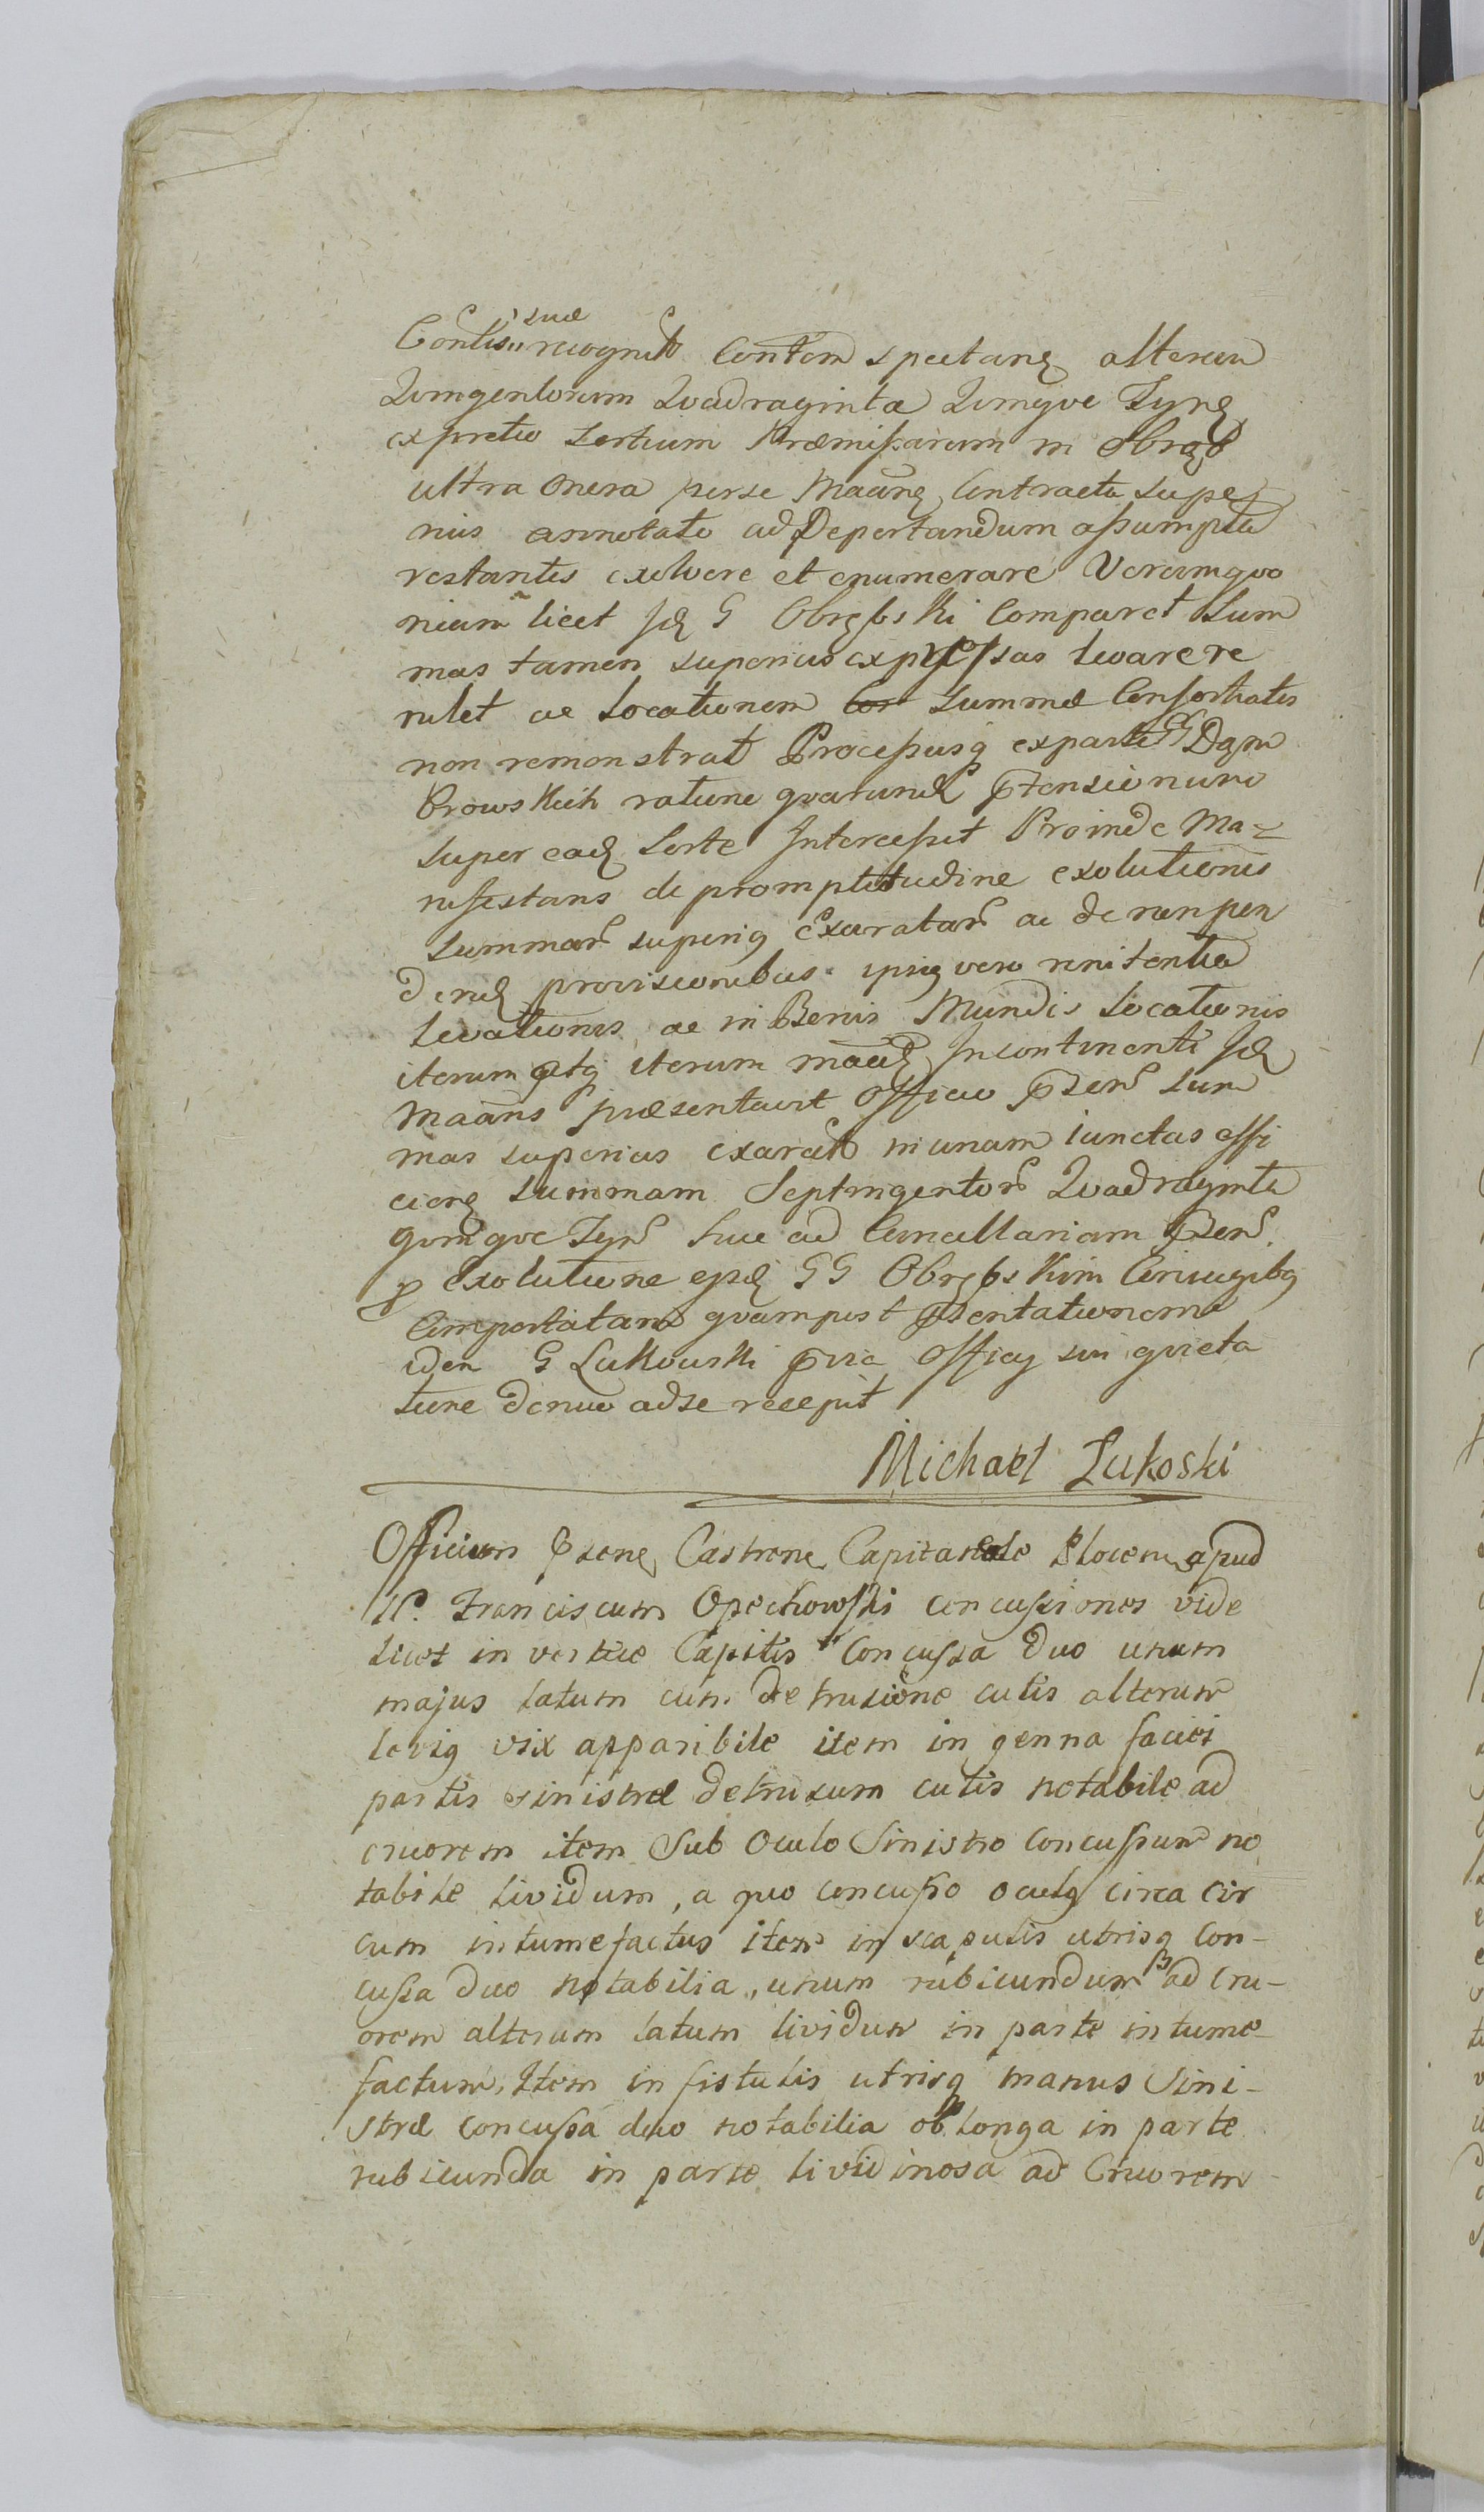 suae
Contis recognit Contem spectanę alteram
Quingentorum Quadraginta Quinque Tynę
ex pretio sortium Praemissarum in Obręb
ultra onera per se Maanę Contractu supe
rius annotato ad Deportandum assumpta
restantes exolvere et enumerare Verum quo
niam licet Idę G Obrębski Comparet Sum
mas tamen superius expressas levare re
nulet ac Locationem Summae Consortialis
non remonstrat Processusq ex parte GG Dąm
browskich ratione quarund ptensionum
super eadę Sorte Intercessit Proinde Ma-
nifestans de promptitudine exolutionis
Summar superiq Exaratar ac de non pen
dendę provisionibus ipsiq vero renitentia
levationis ac in Bonis Mundis Locationis
iterum atq iterum maadę Incontinenti Idę
Maans praesentavit Officio pzens Sum
mas superius exarat in unam iunctas effi
cienę Summam Septingentor Quadraginta
quinque Tynf huc ad Cancellariam pzens
p Exolutione ejsdę GG Obrębskim Coniugibq
Comportatam quam post pzentationem
idem G Lukowski pvia Officy sui quieta
tione denuo ad se recepit
Michael Lukoski
Officium pzenę Castrenę Capitaneale Plocenę apud
N. Franciscum Opechowski concussiones vide
licet in vertice Capitis Concussa duo unum
majus latum cum detrusione cutis alterum
leviq vix apparibile item in genna faciei
partis sinistrae detrusum cutis notabile ad
cruorem item Sub Oculo Sinistro Concussum no
tabile lividum, a quo concusso oculq circa cir
cum intumefactus item in scapulis utrisq Con-
cussa duo notabilia, unum rubicundum ad cru-
orem alterum latum lividum in parte intume
factum, Item in fistulis utrisq manus Sini-
strae concussa duo notabilia oblonga in parte
rubicunda in parte lividinosa ad Cruorem